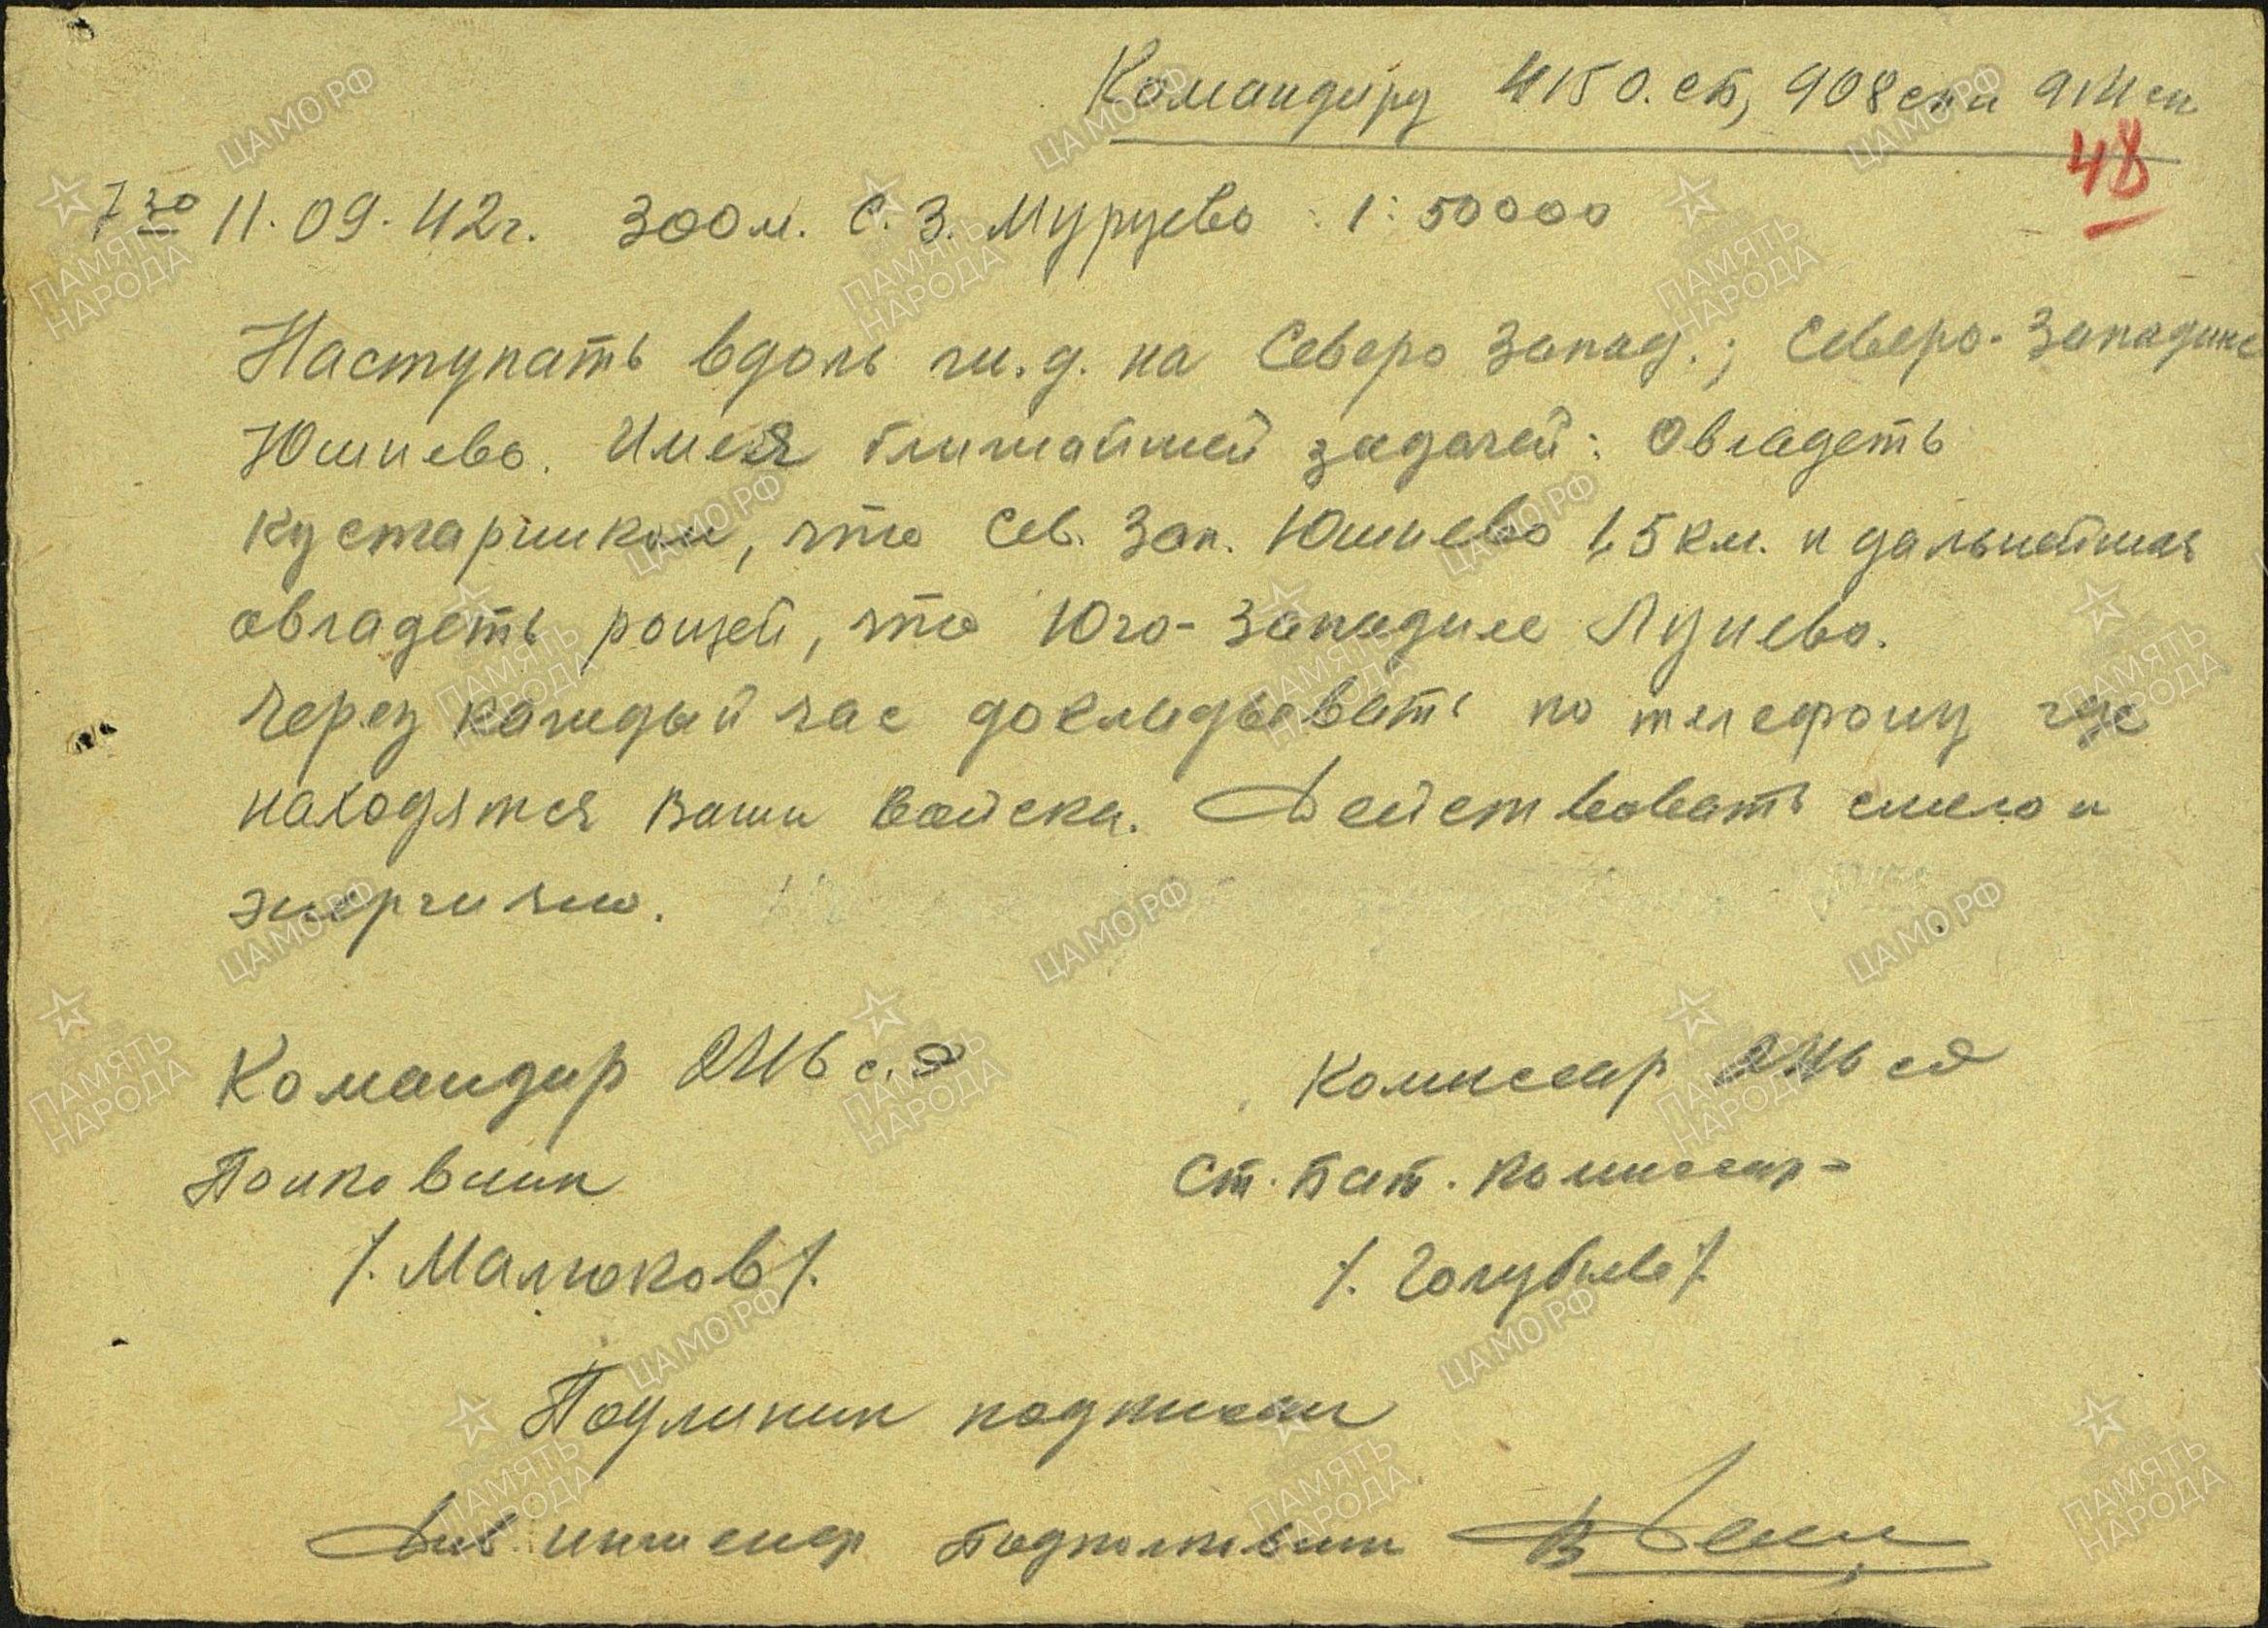 Командиру 415 о.сб, 908 сп и 914 сп
48
7 30 11.09.42г. 300м. С.З. Муруево 1:50000
Наступать вдоль ж.д. на Северо Запад.; Северо-Западнее
Юшиево. Имея ближайшей задачей: Овладеть
кустарником, что Сев. Зап. Юшиево 1,5 км. и дальнейшая
овладеть рощей, что Юго-Западнее Лунево.
Через каждый час докладывать по телефону где
находятся Ваши войска. Действовать смело и
энергично.
Командир 246 с.д
Комиссар 246 сд
Полковник
Ст. Бат. Комиссар-
/. Мелюков /.
/. Голубцев /.
Подлинник подписан
Див. инженер Подполковник